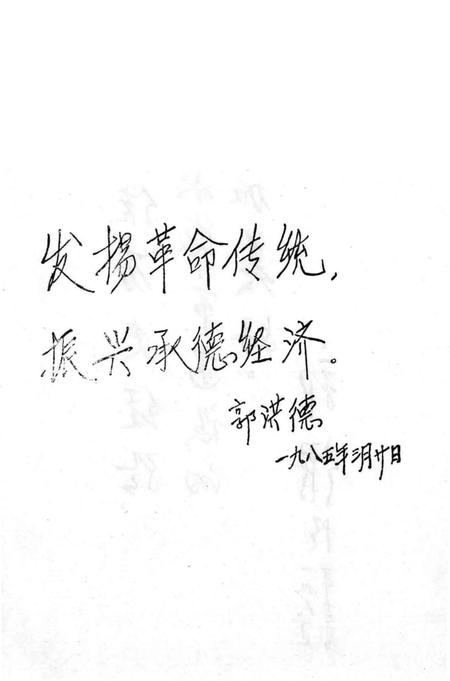 发揚革命传统，
振兴承德经济。
郭洪德
一九八五年三月廿日